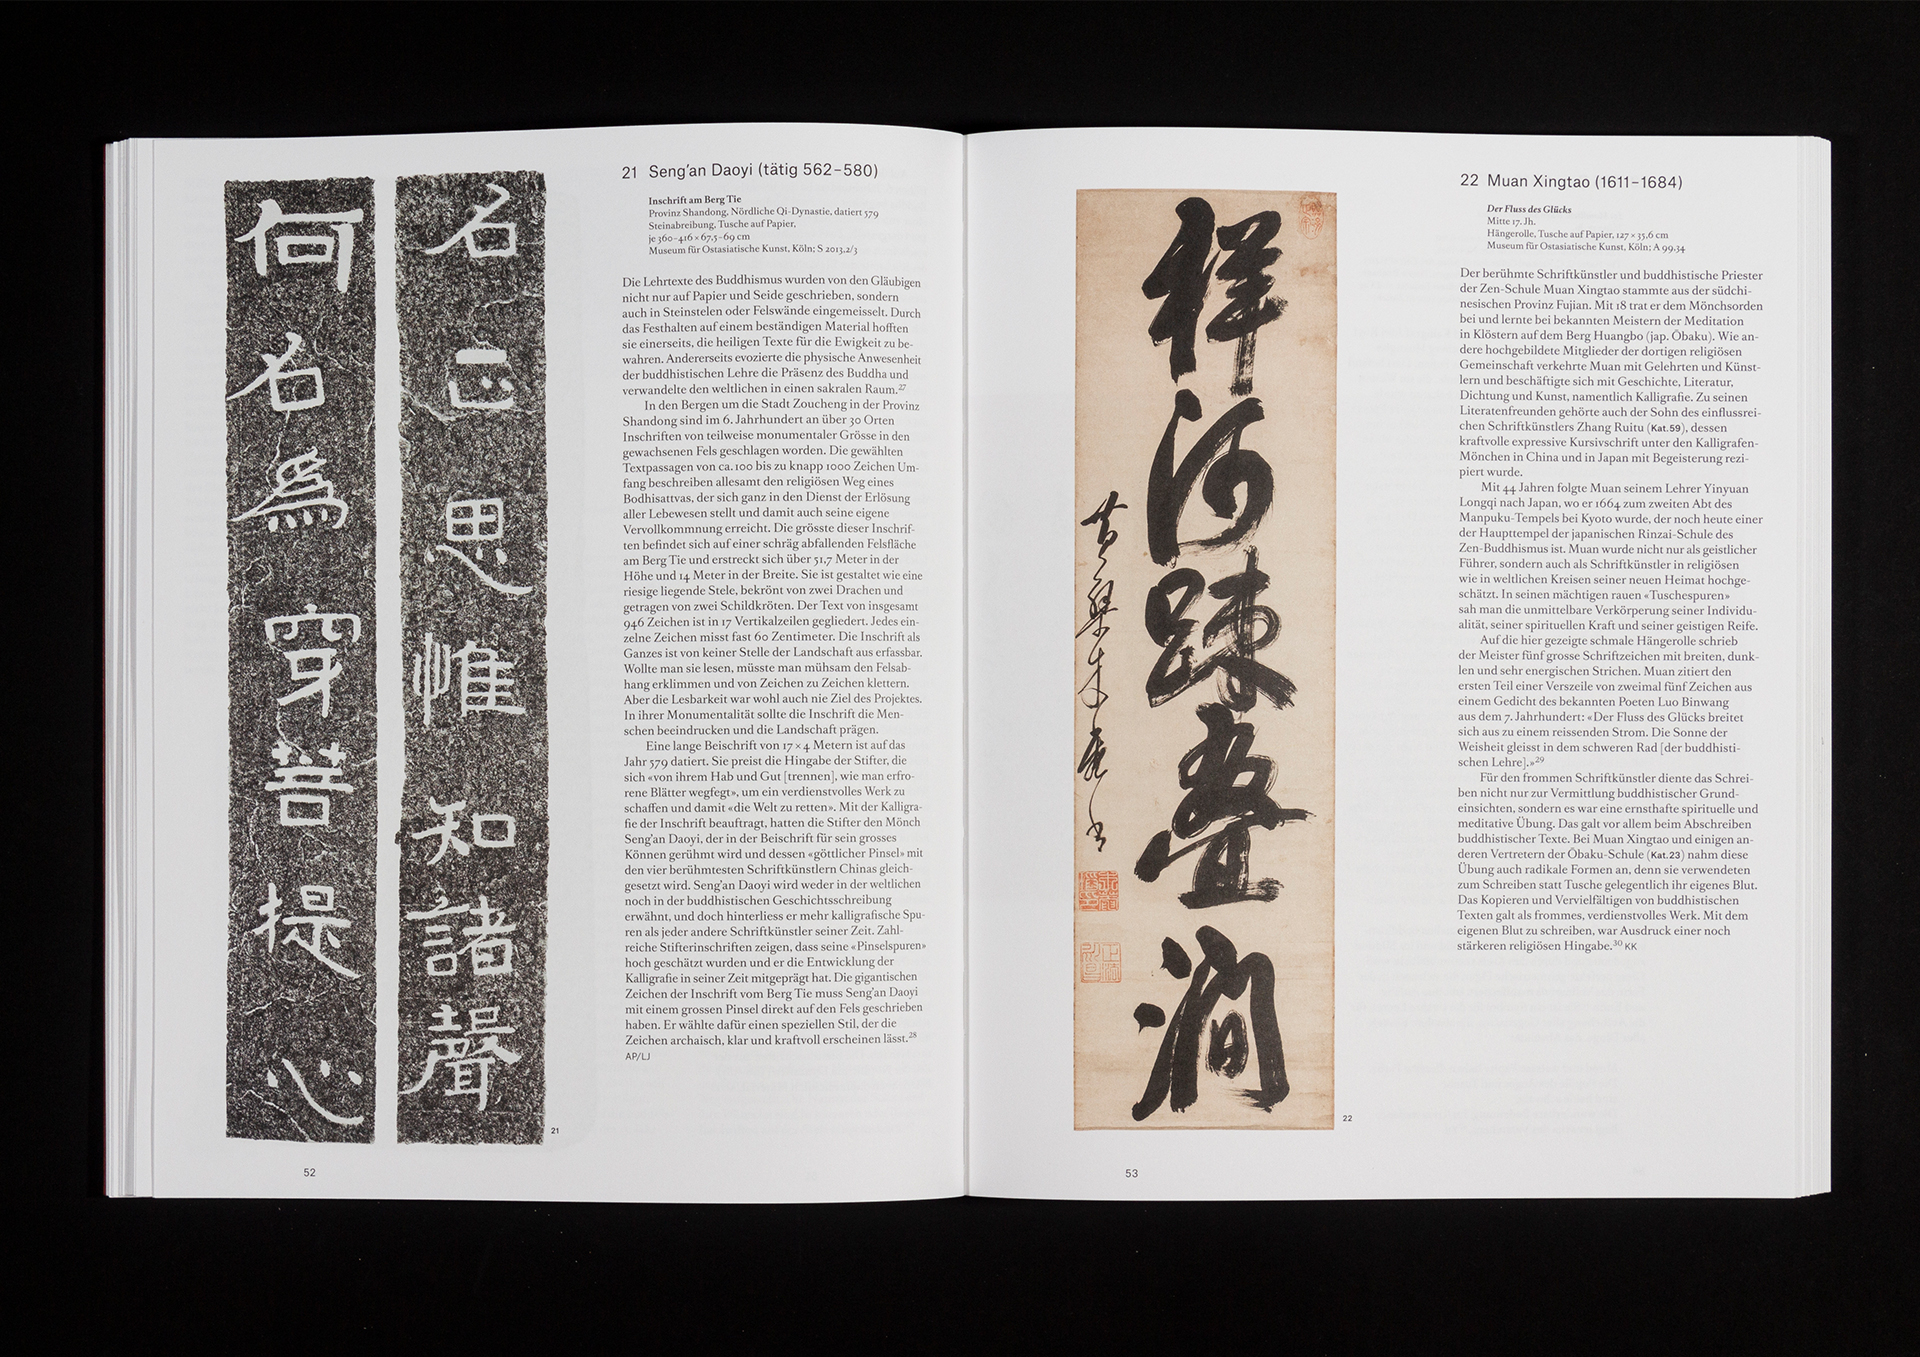 名
正
思
惟
知
諸
聲
何
名
為
穿
菩
提
心
21
52
21 Seng’an Daoyi (tätig 562–580)
Inschrift am Berg Tie
Provinz Shandong, Nördliche Qi-Dynastie, datiert 579
Steinabreibung, Tusche auf Papier,
je 360–416 × 67,5–69 cm
Museum für Ostasiatische Kunst, Köln; S 2013,2/3
Die Lehrtexte des Buddhismus wurden von den Gläubigen
nicht nur auf Papier und Seide geschrieben, sondern
auch in Steinstelen oder Felswände eingemeisselt. Durch
das Festhalten auf einem beständigen Material hofften
sie einerseits, die heiligen Texte für die Ewigkeit zu be-
wahren. Andererseits evozierte die physische Anwesenheit
der buddhistischen Lehre die Präsenz des Buddha und
verwandelte den weltlichen in einen sakralen Raum.27
In den Bergen um die Stadt Zoucheng in der Provinz
Shandong sind im 6. Jahrhundert an über 30 Orten
Inschriften von teilweise monumentaler Grösse in den
gewachsenen Fels geschlagen worden. Die gewählten
Textpassagen von ca. 100 bis zu knapp 1000 Zeichen Um-
fang beschreiben allesamt den religiösen Weg eines
Bodhisattvas, der sich ganz in den Dienst der Erlösung
aller Lebewesen stellt und damit auch seine eigene
Vervollkommnung erreicht. Die grösste dieser Inschrif-
ten befindet sich auf einer schräg abfallenden Felsfläche
am Berg Tie und erstreckt sich über 51,7 Meter in der
Höhe und 14 Meter in der Breite. Sie ist gestaltet wie eine
riesige liegende Stele, bekrönt von zwei Drachen und
getragen von zwei Schildkröten. Der Text von insgesamt
946 Zeichen ist in 17 Vertikalzeilen gegliedert. Jedes ein-
zelne Zeichen misst fast 60 Zentimeter. Die Inschrift als
Ganzes ist von keiner Stelle der Landschaft aus erfassbar.
Wollte man sie lesen, müsste man mühsam den Felsab-
hang erklimmen und von Zeichen zu Zeichen klettern.
Aber die Lesbarkeit war wohl auch nie Ziel des Projektes.
In ihrer Monumentalität sollte die Inschrift die Men-
schen beeindrucken und die Landschaft prägen.
Eine lange Beischrift von 17 × 4 Metern ist auf das
Jahr 579 datiert. Sie preist die Hingabe der Stifter, die
sich «von ihrem Hab und Gut [trennen], wie man erfro-
rene Blätter wegfegt», um ein verdienstvolles Werk zu
schaffen und damit «die Welt zu retten». Mit der Kalligra-
fie der Inschrift beauftragt, hatten die Stifter den Mönch
Seng’an Daoyi, der in der Beischrift für sein grosses
Können gerühmt wird und dessen «göttlicher Pinsel» mit
den vier berühmtesten Schriftkünstlern Chinas gleich-
gesetzt wird. Seng’an Daoyi wird weder in der weltlichen
noch in der buddhistischen Geschichtsschreibung
erwähnt, und doch hinterliess er mehr kalligrafische Spu-
ren als jeder andere Schriftkünstler seiner Zeit. Zahl-
reiche Stifterinschriften zeigen, dass seine «Pinselspuren»
hoch geschätzt wurden und er die Entwicklung der
Kalligrafie in seiner Zeit mitgeprägt hat. Die gigantischen
Zeichen der Inschrift vom Berg Tie muss Seng’an Daoyi
mit einem grossen Pinsel direkt auf den Fels geschrieben
haben. Er wählte dafür einen speziellen Stil, der die
Zeichen archaisch, klar und kraftvoll erscheinen lässt.28
AP/LJ
祥
河
疎
叠
澗
黄檗木菴書
22
53
22 Muan Xingtao (1611–1684)
Der Fluss des Glücks
Mitte 17. Jh.
Hängerolle, Tusche auf Papier, 127 × 35,6 cm
Museum für Ostasiatische Kunst, Köln; A 99,34
Der berühmte Schriftkünstler und buddhistische Priester
der Zen-Schule Muan Xingtao stammte aus der südchi-
nesischen Provinz Fujian. Mit 18 trat er dem Mönchsorden
bei und lernte bei bekannten Meistern der Meditation
in Klöstern auf dem Berg Huangbo (jap. Ōbaku). Wie an-
dere hochgebildete Mitglieder der dortigen religiösen
Gemeinschaft verkehrte Muan mit Gelehrten und Künst-
lern und beschäftigte sich mit Geschichte, Literatur,
Dichtung und Kunst, namentlich Kalligrafie. Zu seinen
Literatenfreunden gehörte auch der Sohn des einflussrei-
chen Schriftkünstlers Zhang Ruitu (Kat. 59), dessen
kraftvolle expressive Kursivschrift unter den Kalligrafen-
Mönchen in China und in Japan mit Begeisterung rezi-
piert wurde.
Mit 44 Jahren folgte Muan seinem Lehrer Yinyuan
Longqi nach Japan, wo er 1664 zum zweiten Abt des
Manpuku-Tempels bei Kyoto wurde, der noch heute einer
der Haupttempel der japanischen Rinzai-Schule des
Zen-Buddhismus ist. Muan wurde nicht nur als geistlicher
Führer, sondern auch als Schriftkünstler in religiösen
wie in weltlichen Kreisen seiner neuen Heimat hochge-
schätzt. In seinen mächtigen rauen «Tuschespuren»
sah man die unmittelbare Verkörperung seiner Individu-
alität, seiner spirituellen Kraft und seiner geistigen Reife.
Auf die hier gezeigte schmale Hängerolle schrieb
der Meister fünf grosse Schriftzeichen mit breiten, dunk-
len und sehr energischen Strichen. Muan zitiert den
ersten Teil einer Verszeile von zweimal fünf Zeichen aus
einem Gedicht des bekannten Poeten Luo Binwang
aus dem 7. Jahrhundert: «Der Fluss des Glücks breitet
sich aus zu einem reissenden Strom. Die Sonne der
Weisheit gleisst in dem schweren Rad [der buddhisti-
schen Lehre].»29
Für den frommen Schriftkünstler diente das Schrei-
ben nicht nur zur Vermittlung buddhistischer Grund-
einsichten, sondern es war eine ernsthafte spirituelle und
meditative Übung. Das galt vor allem beim Abschreiben
buddhistischer Texte. Bei Muan Xingtao und einigen an-
deren Vertretern der Ōbaku-Schule (Kat. 23) nahm diese
Übung auch radikale Formen an, denn sie verwendeten
zum Schreiben statt Tusche gelegentlich ihr eigenes Blut.
Das Kopieren und Vervielfältigen von buddhistischen
Texten galt als frommes, verdienstvolles Werk. Mit dem
eigenen Blut zu schreiben, war Ausdruck einer noch
stärkeren religiösen Hingabe.30 KK